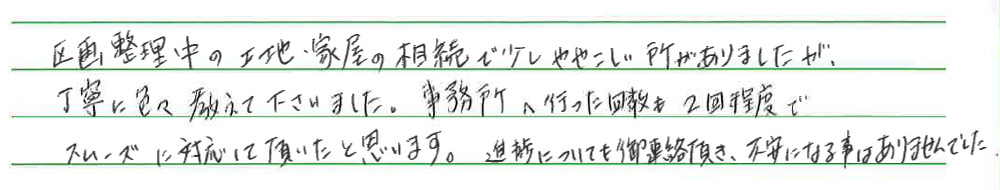 区画整理中の土地・家屋の相続で少しややこしい所がありましたが、
丁寧に色々教えて下さいました。事務所へ行った回数も2回程度で
スムーズに対応して頂いたと思います。進捗についても御連絡頂き、不安になる事はありませんでした。